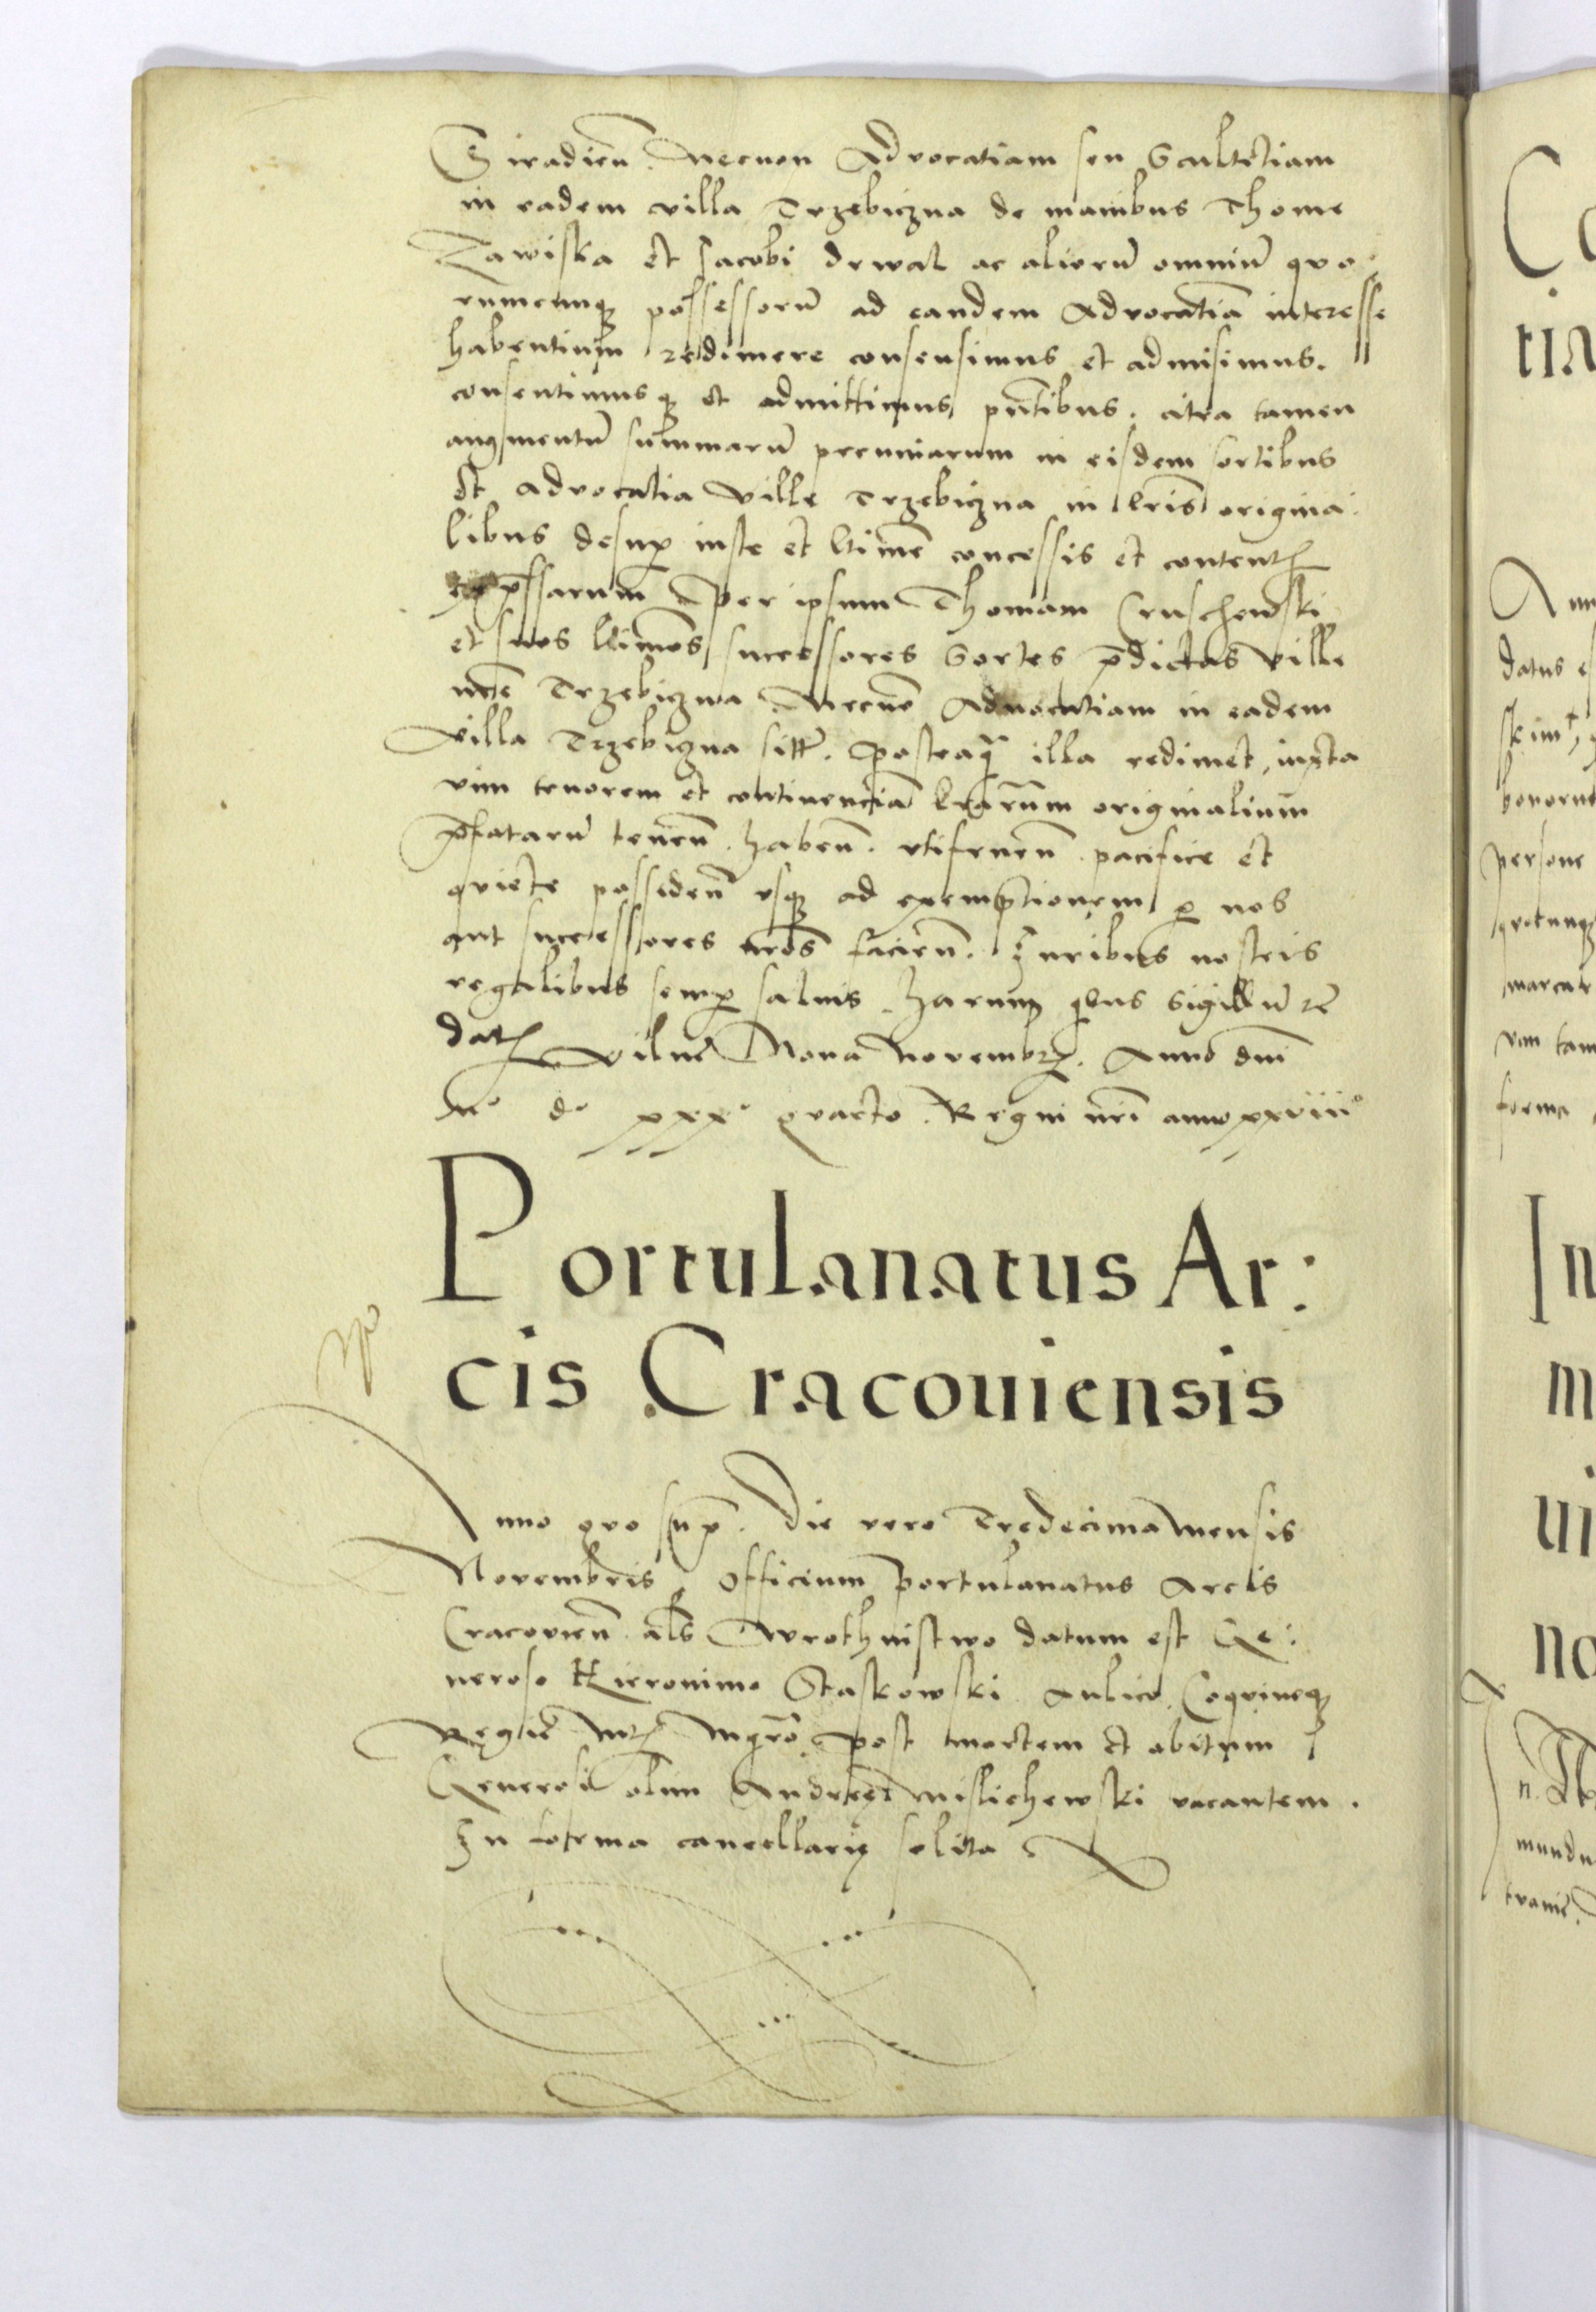 Siradien̄. Necnon Advocatiam seu Scultetiam
in eadem villa Trzebiczna de manibus Thome
Zawiska et Jacobi drwal ac aliorū omniū quo:
rumcumq̄ possessorū ad eandem Advocatiā interesse
habentium redimere consensimus et admisimus.
consentimusq̄ et admittimus pn̄tibus. citra tamen
augmentū summarū pecuniarum in eisdem sortibus
et advocatia ville Trzebiczna in lr̄is origina:
libus desup iuste et ltime concessis et content̄
exp̄ssarum Per ipsum Thomam Cruschewski
et suos ltimos successores Sortes p̄dictas ville
nr̄e Trzebiczna Necnō Advocatiam in eadem
villa Trzebiczna sitt̄. Posteaq̄ illa redimet, iuxta
vim tenorem et continenciā lr̄arum originalium
p̄fatarū tenen̄. haben̄. vtifruen̄. pacifice et
quiete possiden̄ vsq̄ ad exemptionem p nos
aut successores nr̄os facien̄. Juribus nostris
regalibus semp salvis. harum q̄bus sigillū rē
dat̄ Vilnē Nona Novembr̄. Anno dn̄i
Mº dº xxxº quarto. Regni nr̄i anno xxviiiº
Portulanatus Ar:
cis Cracouiensis
Anno quo sup̄. Die vero Tredecima mensis
Novembris, Officium Portulanatus Arcis
Cracovien̄. als Wrothnistwo datum est Ge:
neroso Hieronimo Staskowski Aulico Coquineq̄
Regie Mt̄ Mgr̄o post mortem et obitum
Generosi olim Andree Mislichewski vacantem.
In forma cancellarie solita